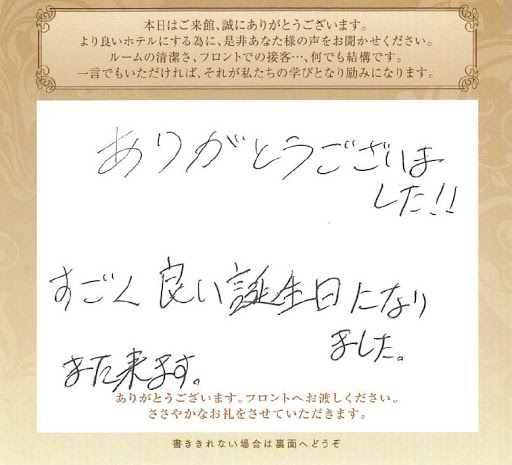 本日はご来館、誠にありがとうございます。
より良いホテルにする為に、是非あなた様の声をお聞かせください。
ルームの清潔さ、フロントでの接客…、何でも結構です。
一言でもいただければ、それが私たちの学びとなり励みになります。
ありがとうございま
した!!
すごく良い誕生日になり
ました。
また来ます。
ありがとうございます。フロントへお渡しください。
ささやかなお礼をさせていただきます。
書ききれない場合は裏面へどうぞ